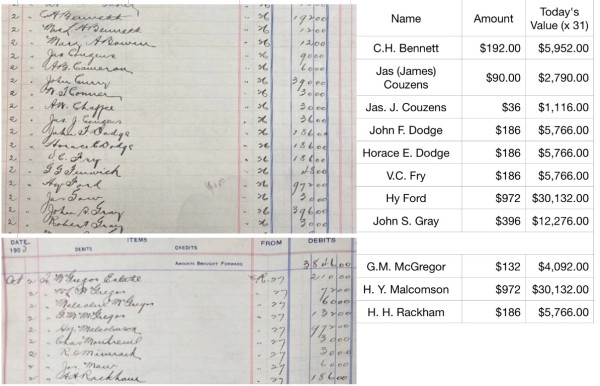 2 " C H Bennett " 26 19200
2 " Mrs L H Bennett " 26 1200
2 " Mary A Bowen " 26 1200
2 " Jas Couzens " 26 9000
2 " A G Cameron " 26 6000
2 " John Curry " 26 39000
2 " W T Conner " 26 3000
2 " A W Chaffee " 26 3000
2 " Jas J Couzens " 26 3600
2 " John F Dodge " 26 18600
2 " Horace E Dodge " 26 18600
2 " V.C. Fry " 26 18600
2 " Fenwick " 26 4800
2 " Hy Ford " 26 97200
2 " Jas " 26 3000
2 " John S Gray " 26 39600
2 " Robert Gray " 26 3000
DATE 190 ITEMS DEBITS CREDITS FROM DEBITS
AMOUNT BROUGHT FORWARD 384600
Oct 2 To McGregor Estate 27 21000
2 " McGregor " 27 7200
2 " Malcolm McGregor " 27 6000
2 " G M McGregor " 27 13200
2 " Hy Malcomson " 27 97200
2 " Chas Montreuil " 27 3000
2 " " 27 3000
2 " Jas " 27 6000
2 " H H Rackham " 27 18600
Name Amount Today's Value (x 31)
C.H. Bennett $192.00 $5,952.00
Jas (James) Couzens $90.00 $2,790.00
Jas. J. Couzens $36 $1,116.00
John F. Dodge $186 $5,766.00
Horace E. Dodge $186 $5,766.00
V.C. Fry $186 $5,766.00
Hy Ford $972 $30,132.00
John S. Gray $396 $12,276.00
G.M. McGregor $132 $4,092.00
H. Y. Malcomson $972 $30,132.00
H. H. Rackham $186 $5,766.00